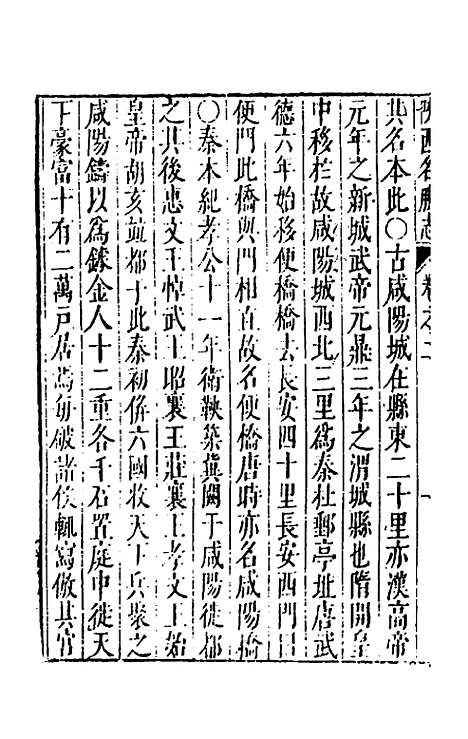 陜西名勝志 卷之二
其名本此○古咸陽城在縣東二十里亦漢高帝
元年之新城武帝元鼎三年之渭城縣也隋開皇
中移於故咸陽城西北三里爲秦杜郵亭址唐武
德六年始移便橋橋去長安四十里長安西門曰
便門此橋與門相直故名便橋唐時亦名咸陽橋
○秦本紀孝公十一年衛鞅築冀闕于咸陽徙都
之其後惠文王悼武王昭襄王莊襄王孝文王始
皇帝胡亥並都于此秦初併六國收天下兵聚之
咸陽鑄以爲鐻金人十二重各千石置庭中徙天
下豪富十有二萬戸居焉每破諸侯輒寫倣其宮